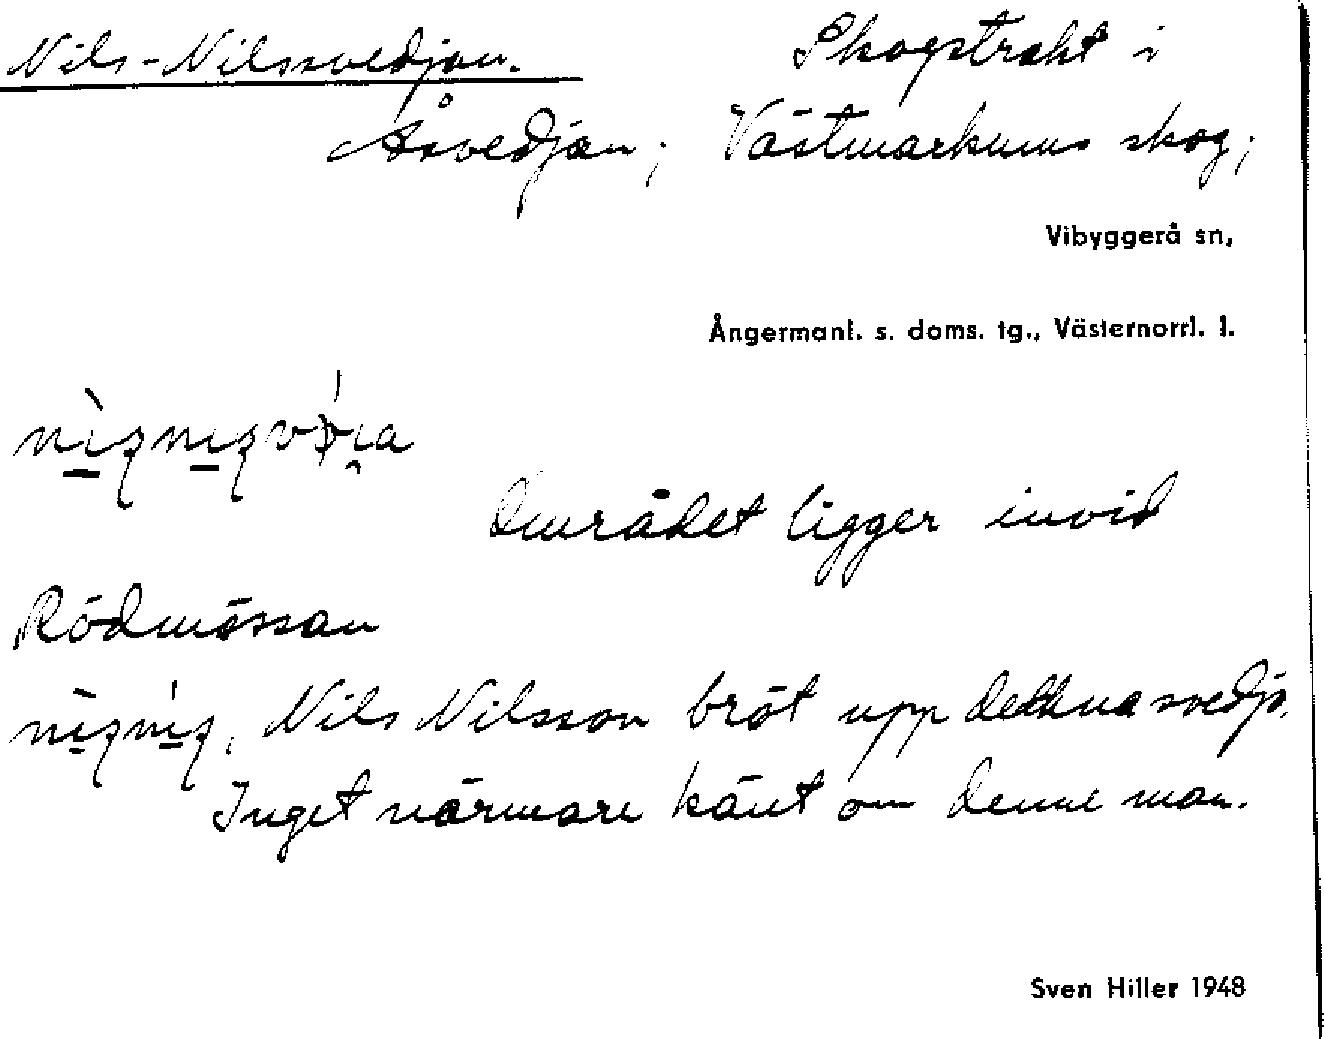 Nils-Nilssvedjan. Skogstrakt i
Åsvedjan; Västmarkums skog;
Vibyggerå sn,
Ångermanl. s. doms. tg., Västernorrl. l.
Området ligger invid
Rödmössan
Nils Nilsson bröt upp denna svedja.
Inget närmare känt om denne man.
Sven Hiller 1948